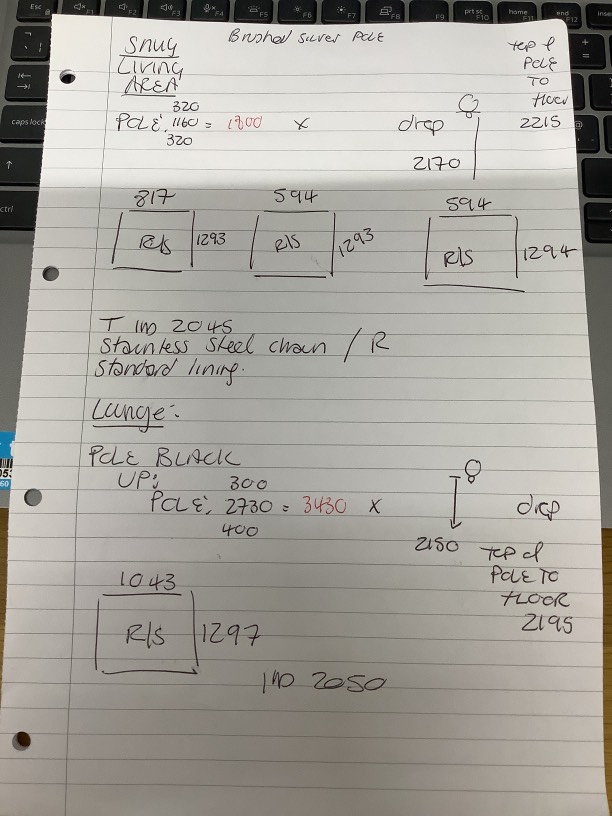 Brushed silver POLE
Snug
Living
AREA
top of
POLE
TO
floor
2215
320
POLE: 1160 = 1800 x
320
drop
2170
817
R/S
1293
594
R/S
1293
594
R/S
1294
T IND 2045
Stainless steel chain / R
Standard lining.
Lounge:
POLE BLACK
UP: 300
POLE: 2730 = 3430 x
400
drop
2150
top of
POLE TO
FLOOR
2195
1043
R/S
1297
IND 2050
caps lock
ctrl
Esc
F1
F2
F3
F4
F5
F6
F7
F8
F9
prt sc
F10
home
F11
end
F12